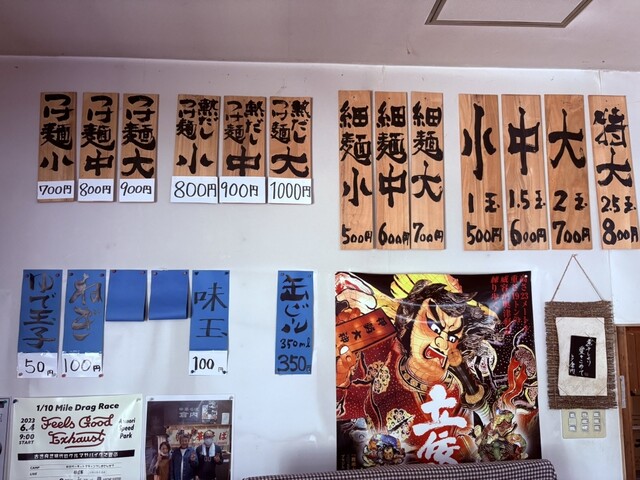 つけ麺小
700円
つけ麺中
800円
つけ麺大
900円
熱だし
つけ麺小
800円
熱だし
つけ麺中
900円
熱だし
つけ麺大
1000円
細麺小
500円
細麺中
600円
細麺大
700円
小
1玉
500円
中
1.5玉
600円
大
2玉
700円
特大
2.5玉
800円
ゆで玉子
50円
ねぎ
100円
味玉
100円
缶ビール
350ml
350円
1/10 Mile Drag Race
2022
6.4
9:00
START
Feels Good
Exhaust
Speed
Park